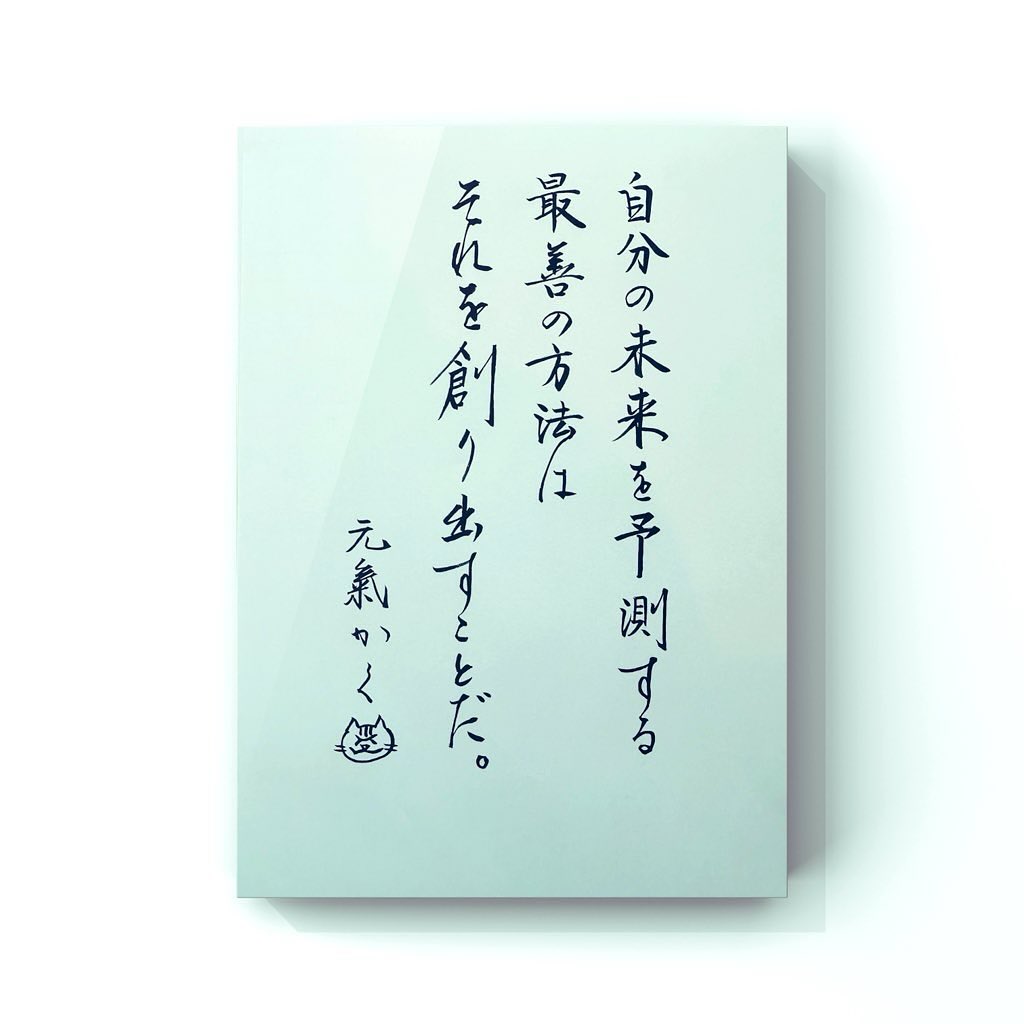 自分の未来を予測する
最善の方法は
それを創り出すことだ。
元氣かく